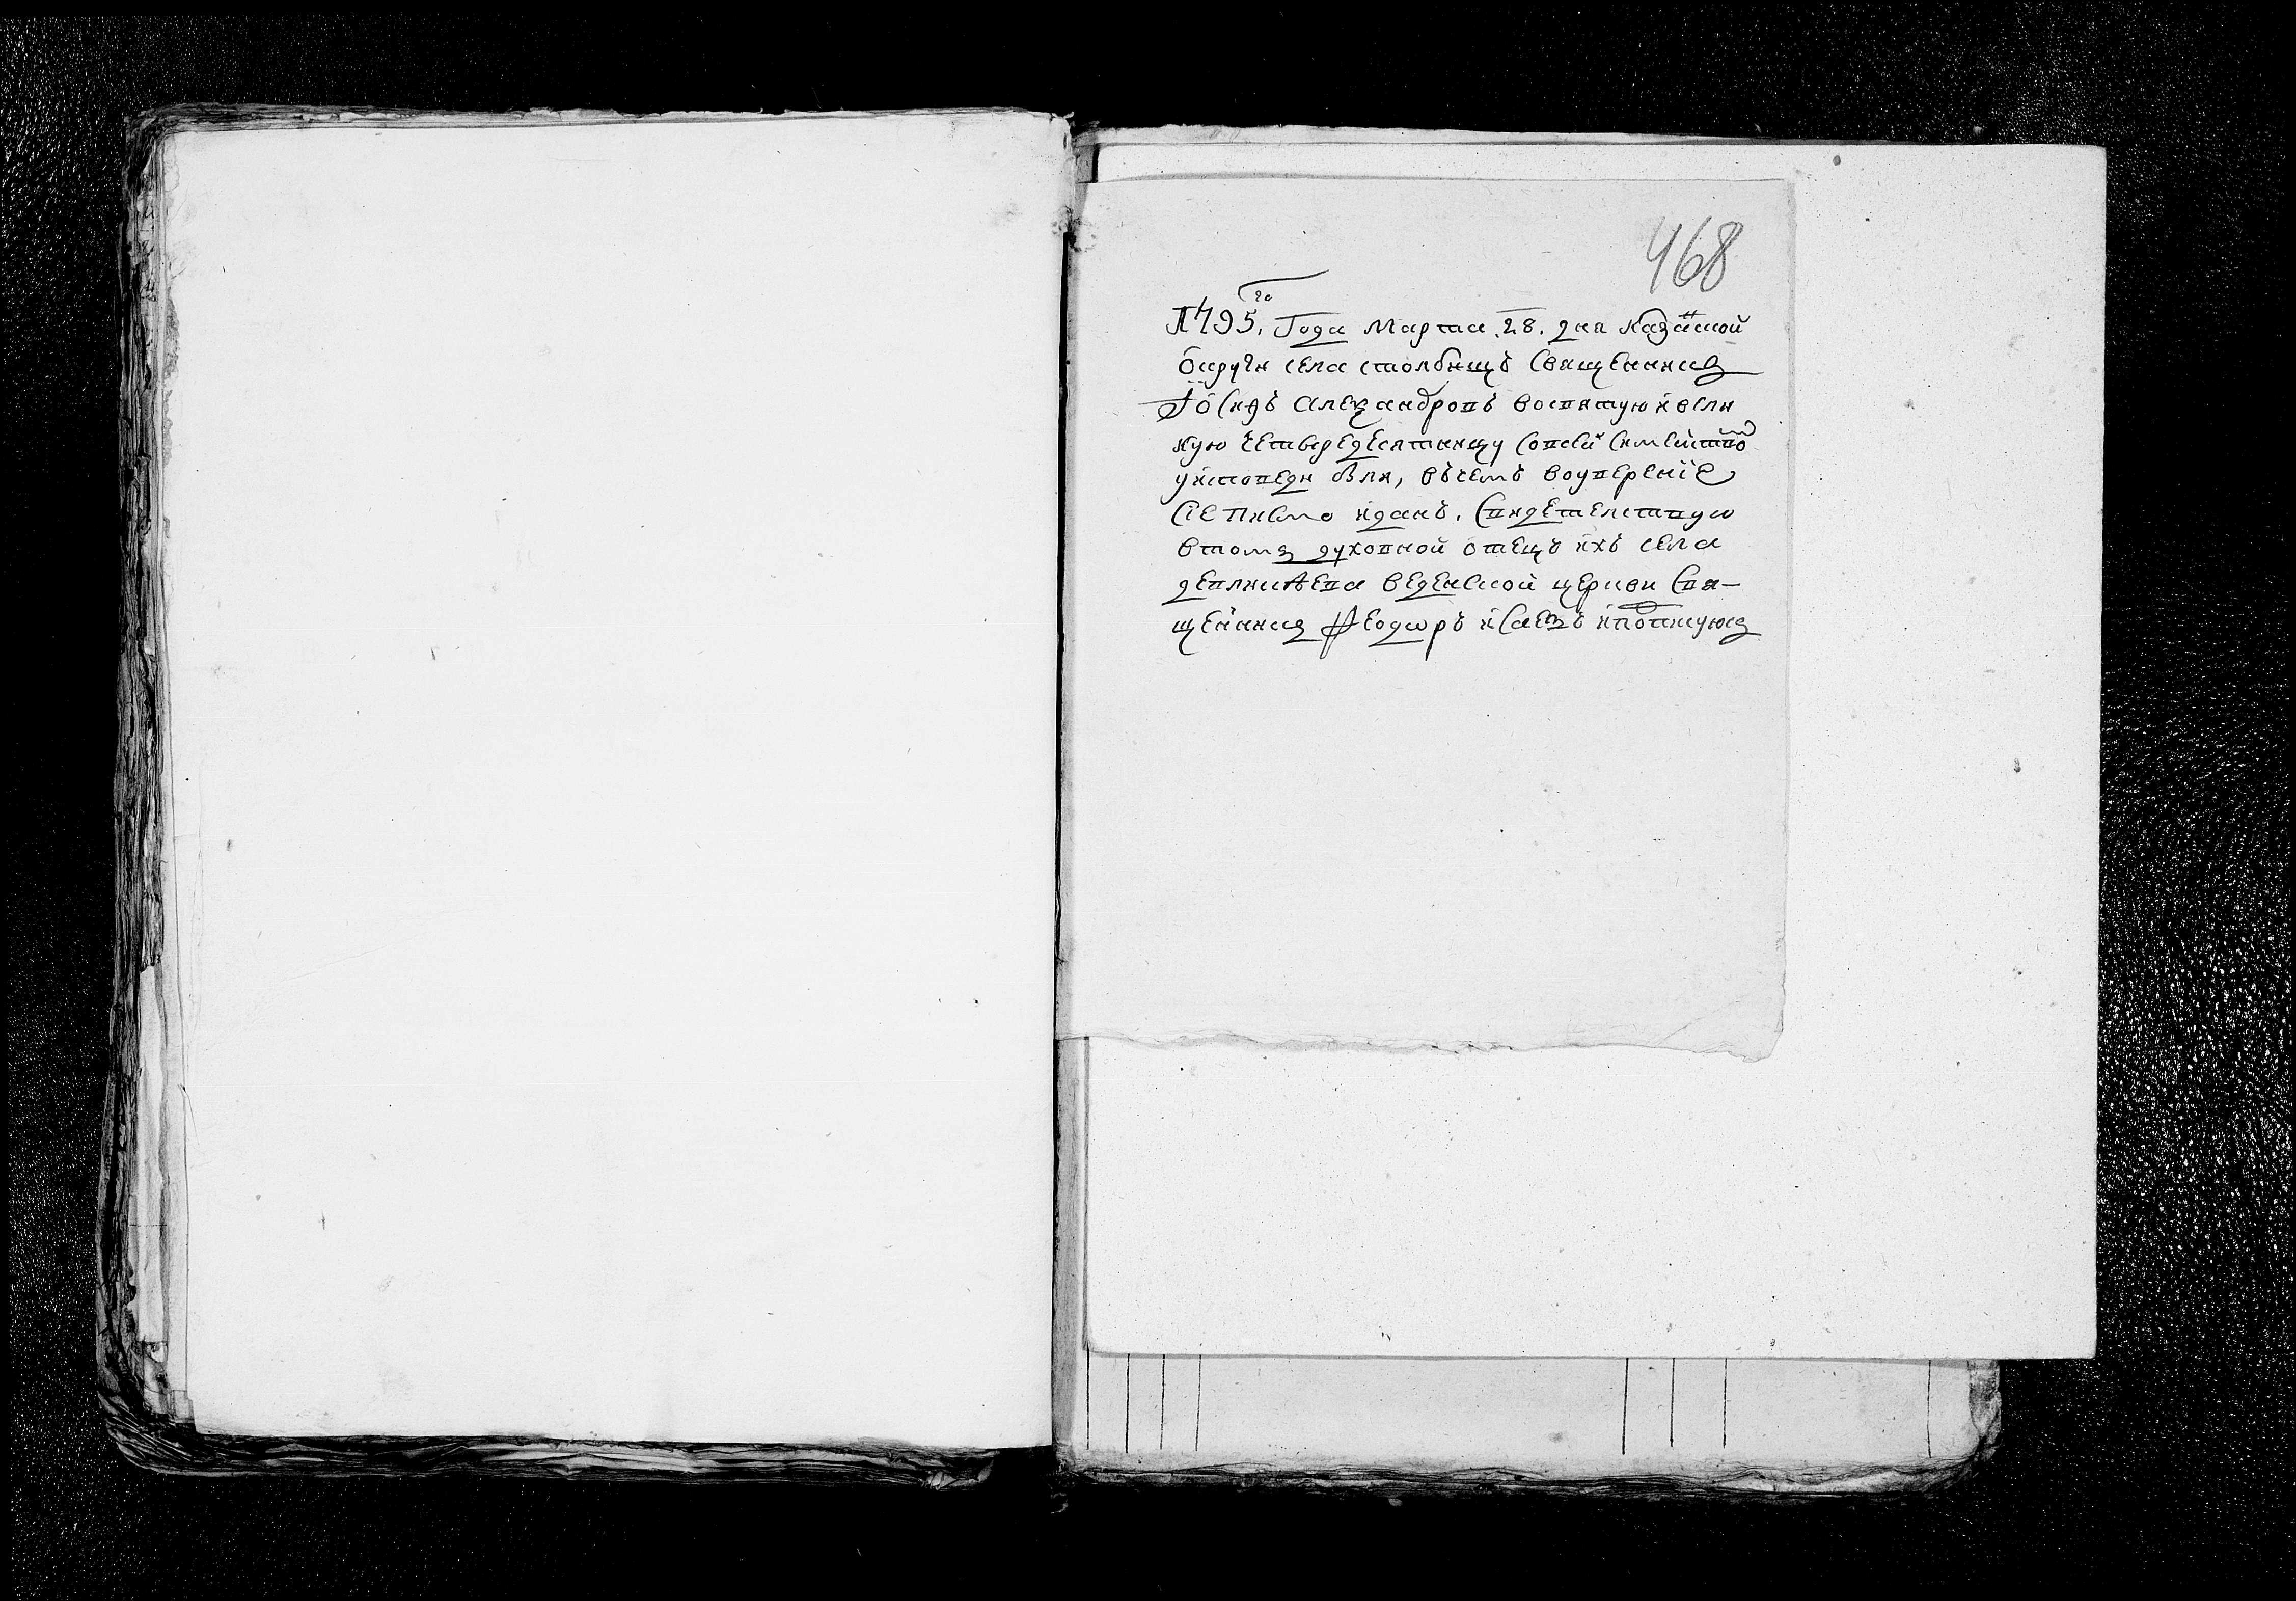 468
1795.го Года Марта 28. дня казанской
округи села столбищъ Священникъ
Іосифъ Александровъ восвятую ивели
кую четвередесятницу совсемъ семействомъ
уисповеди были, въчемъ воуверение
сие писмо иданъ. Свидетелствую
втомъ духовной отецъ ихъ села
девликѣева веденской церкви Свя-
щенникъ Ѳеодоръ исаевъ иподписуюсъ